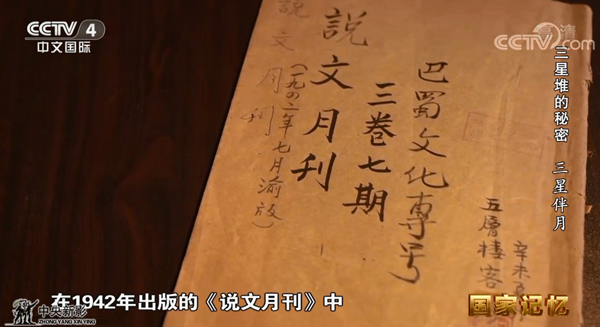 CCTV 4
中文国际
CCTV.com
三星堆的秘密 三星伴月
巴蜀文化專号
三卷七期
說文月刊
(一九四二年七月渝版)
說文月刊
五層樓客
辛未
在1942年出版的《说文月刊》中
国家记忆
中央新影
ZHONG YANG XIN YING